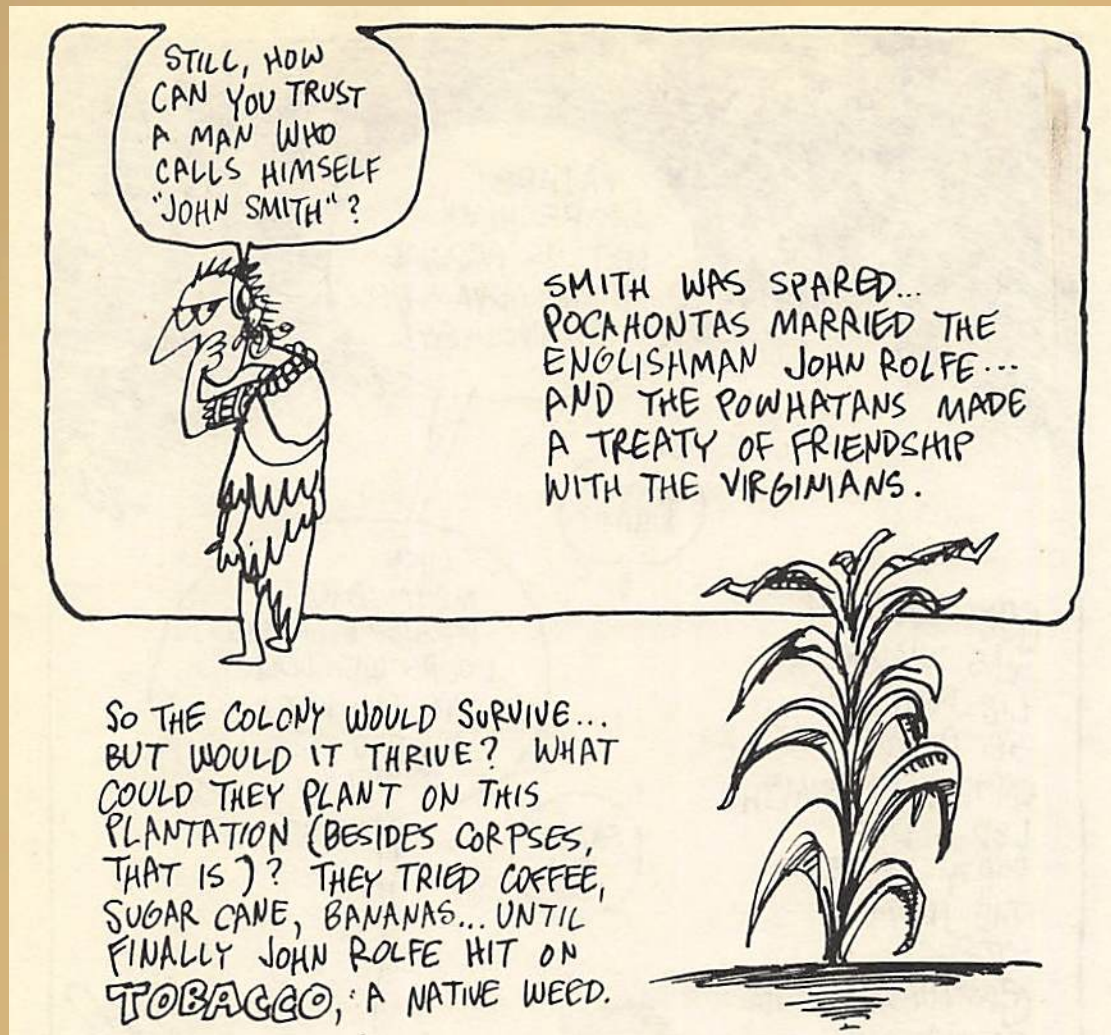 STILL, HOW
CAN YOU TRUST
A MAN WHO
CALLS HIMSELF
"JOHN SMITH"?
SMITH WAS SPARED...
POCAHONTAS MARRIED THE
ENGLISHMAN JOHN ROLFE...
AND THE POWHATANS MADE
A TREATY OF FRIENDSHIP
WITH THE VIRGINIANS.
SO THE COLONY WOULD SURVIVE...
BUT WOULD IT THRIVE? WHAT
COULD THEY PLANT ON THIS
PLANTATION (BESIDES CORPSES,
THAT IS)? THEY TRIED COFFEE,
SUGAR CANE, BANANAS... UNTIL
FINALLY JOHN ROLFE HIT ON
TOBACCO, A NATIVE WEED.